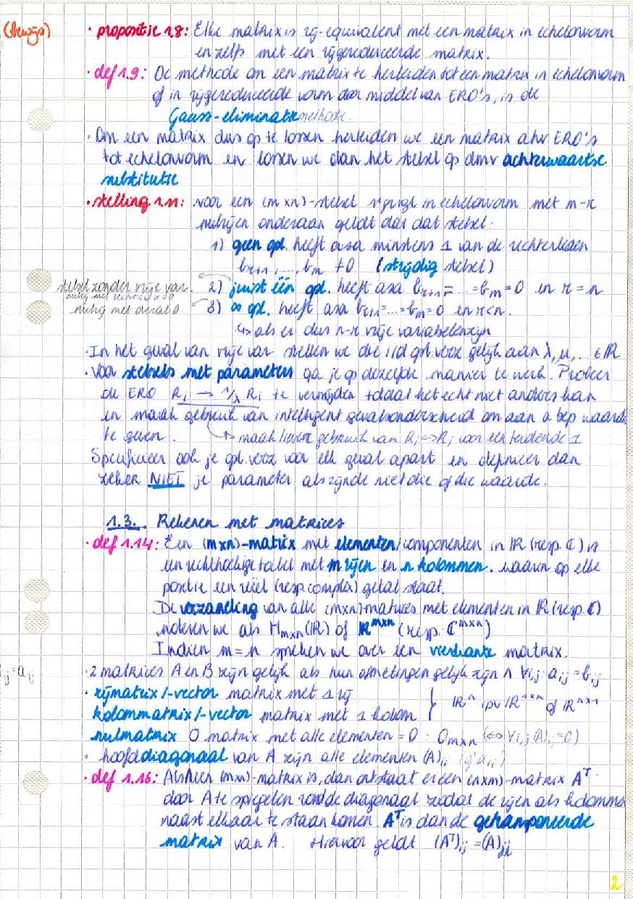 (bewijs)
• propositie 1.8: Elke matrix is rij-equivalent met een matrix in echelonvorm
en zelfs met een rijgereduceerde matrix.
• def 1.9: De methode om een matrix te herleiden tot een matrix in echelonvorm
of in rijgereduceerde vorm door middel van ERO's, is de
Gauss-eliminatiemethode.
• Om een matrix dus op te lossen herleiden we een matrix a.h.v ERO's
tot echelonvorm en lossen we dan het stelsel op dmv achterwaartse
substitutie
• stelling 1.11: voor een (m×n)-stelsel in echelonvorm met m-r
nulrijen onderaan geldt dat dat stelsel:
1) geen opl. heeft asa minstens 1 van de rechterleden
b_{r+1}, ..., b_m ≠ 0 (strijdig stelsel)
stelsel zonder vrije var.
2) juist één opl. heeft asa b_{r+1} = ... = b_m = 0 en r = n
3) ∞ opl. heeft asa b_{r+1} = ... = b_m = 0 en r<n.
↳ als er dus n-r vrije variabelen zijn
• In het geval van vrije var stellen we die i/d opl.verz gelijk aan λ, μ, ... ∈ ℝ
• Voor stelsels met parameters ga je op dezelfde manier te werk. Probeer
de ERO R_i → 1/λ R_i te vermijden totdat het echt niet anders kan
en maak gebruik van intelligent gevalsonderscheid om aan λ bep waarde
te geven. ↳ maak liever gebruik van R_i ↔ R_j voor een leidende 1
Specifieer ook je opl.verz voor elk geval apart en definieer dan
zeker NIET je parameter als zijnde niet die of die waarde.
1.3. Rekenen met matrices
• def 1.14: Een (m×n)-matrix met elementen/componenten in ℝ (resp. ℂ) is
een rechthoekige tabel met m rijen en n kolommen, waarin op elke
positie een reëel (resp. complex) getal staat.
De verzameling van alle (m×n)-matrices met elementen in ℝ (resp. ℂ)
noteren we als M_{m×n}(ℝ) of ℝ^{m×n} (resp. ℂ^{m×n})
Indien m = n spreken we over een vierkante matrix.
_{ij} = a_{ij}
• 2 matrices A en B zijn gelijk als hun afmetingen gelijk zijn ∧ ∀i,j: a_{ij} = b_{ij}
• rijmatrix/-vector matrix met 1 rij
kolommatrix/-vector matrix met 1 kolom } ℝ^n ipv ℝ^{1×n} of ℝ^{n×1}
nulmatrix O matrix met alle elementen = 0 : O_{m×n} (⇔ ∀i,j (A)_{ij} = 0)
• hoofddiagonaal van A zijn alle elementen (A)_{ii}
• def 1.16: Als A een (m×n)-matrix is, dan ontstaat er een (n×m)-matrix A^T
door A te spiegelen rond de diagonaal zodat de rijen als kolommen
naast elkaar te staan komen. A^T is dan de getransponeerde
matrix van A. Hiervoor geldt (A^T)_{ij} = (A)_{ji}
2